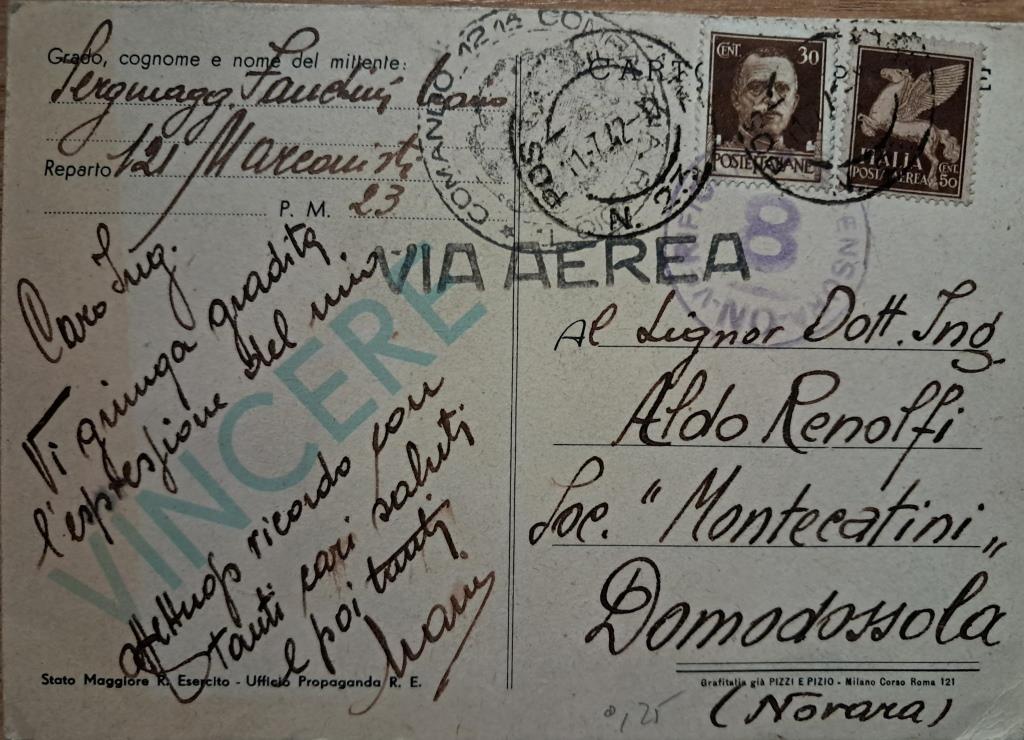 Grado, cognome e nome del mittente:
Sergmagg.
Reparto 121 Marconisti
P. M. 23
Caro Ing.
Vi giunga gradita
l'espressione del mio
affettuoso ricordo con
tanti cari saluti
e poi tanti
VINCERE
Stato Maggiore R. Esercito - Ufficio Propaganda R. E.
COMANDO 121
POSTA
11.7.42
N. 23
CENT. 30
POSTE ITALIANE
ITALIA
POSTA AEREA CENT. 50
8
VIA AEREA
Al Signor Dott. Ing
Aldo Renolfi
Soc. "Montecatini"
Domodossola
(Novara)
Grafitalia già PIZZI E PIZIO - Milano Corso Roma 121
0,25